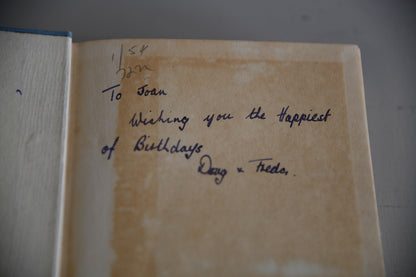 1/54
To Joan
Wishing you the Happiest
of Birthdays
Doug &